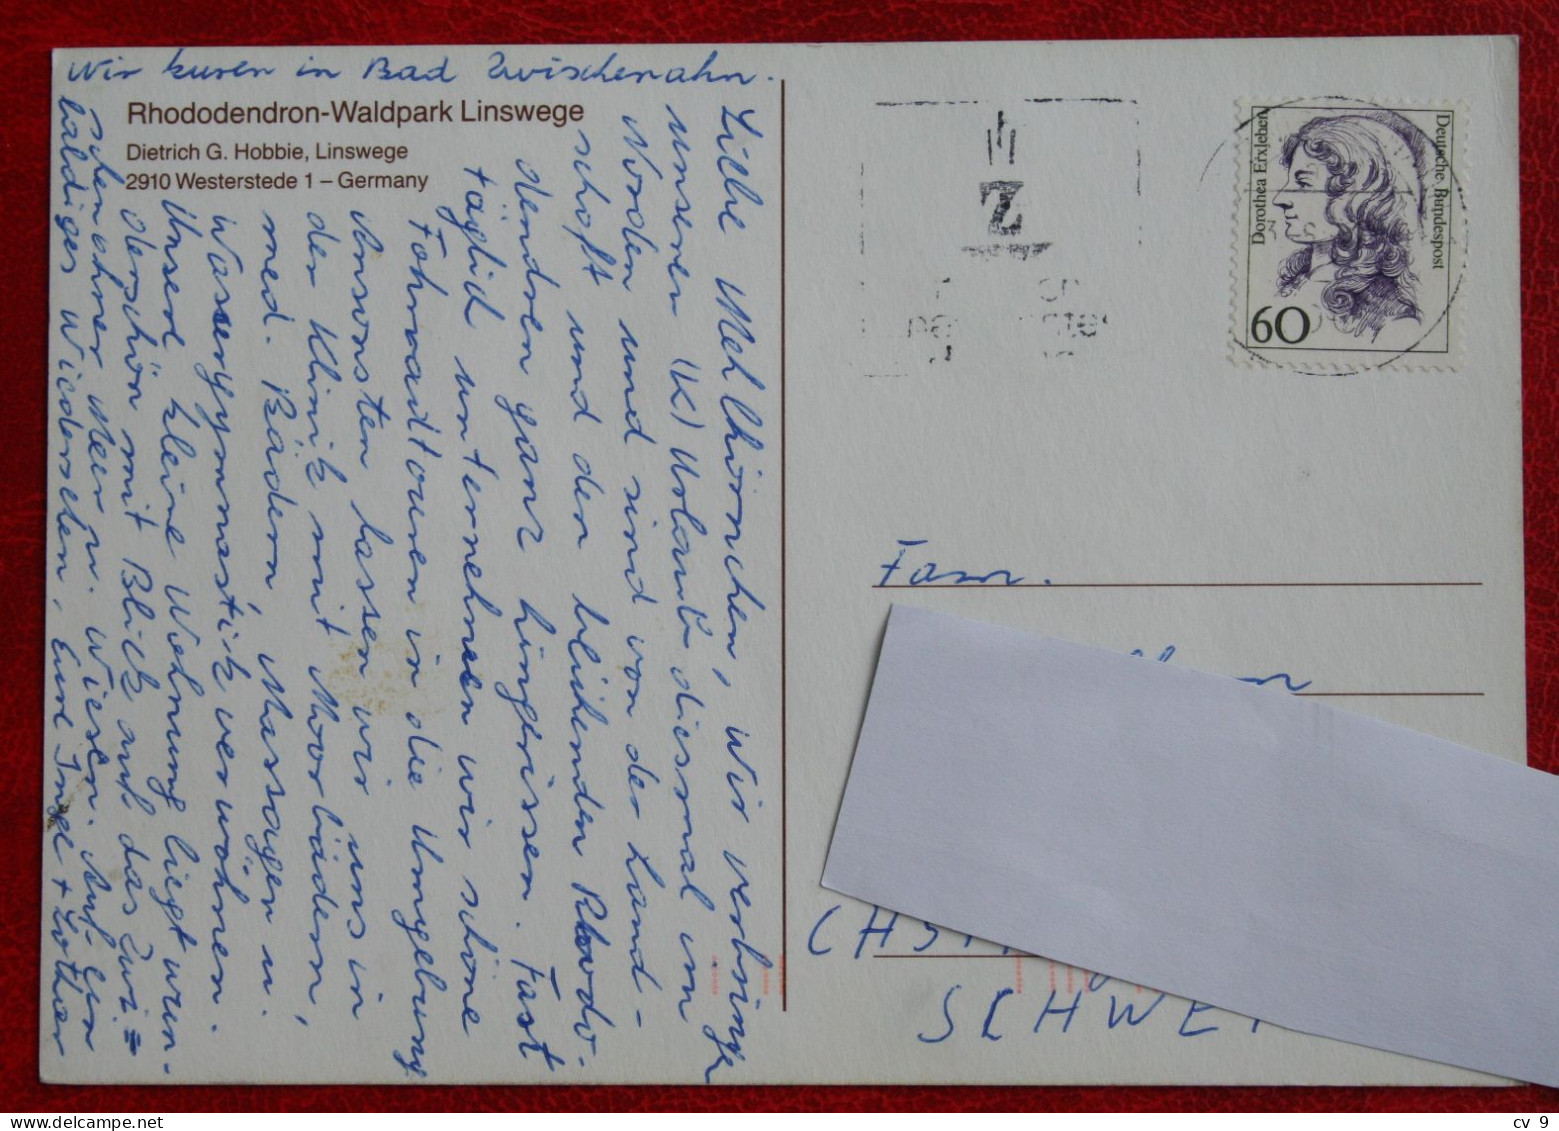 Wir kuren in Bad Zwischenahn.
Rhododendron-Waldpark Linswege
Dietrich G. Hobbie, Linswege
2910 Westerstede 1 – Germany
Liebe Mehlhörnchen, wir verbringen
unseren (K)Urlaub diesmal im
Norden und sind von der Land-
schaft und den blühenden Rhodo-
dendren ganz hingerissen. Fast
täglich unternehmen wir schöne
Fahrradtouren in die Umgebung
Ansonsten lassen wir uns in
der Klinik mit Moorbädern,
med. Bädern, Massagen u.
Wassergymnastik verwöhnen.
Unsere kleine Wohnung liegt wun-
derschön mit Blick auf das Zwi=
schenahner Meer u. Wiesen. Auf ein
baldiges Wiedersehen, Eure Inge + Lothar
Deutsche Bundespost
Dorothea Erxleben
60
Z
Fam.
SCHWEI
cv 9